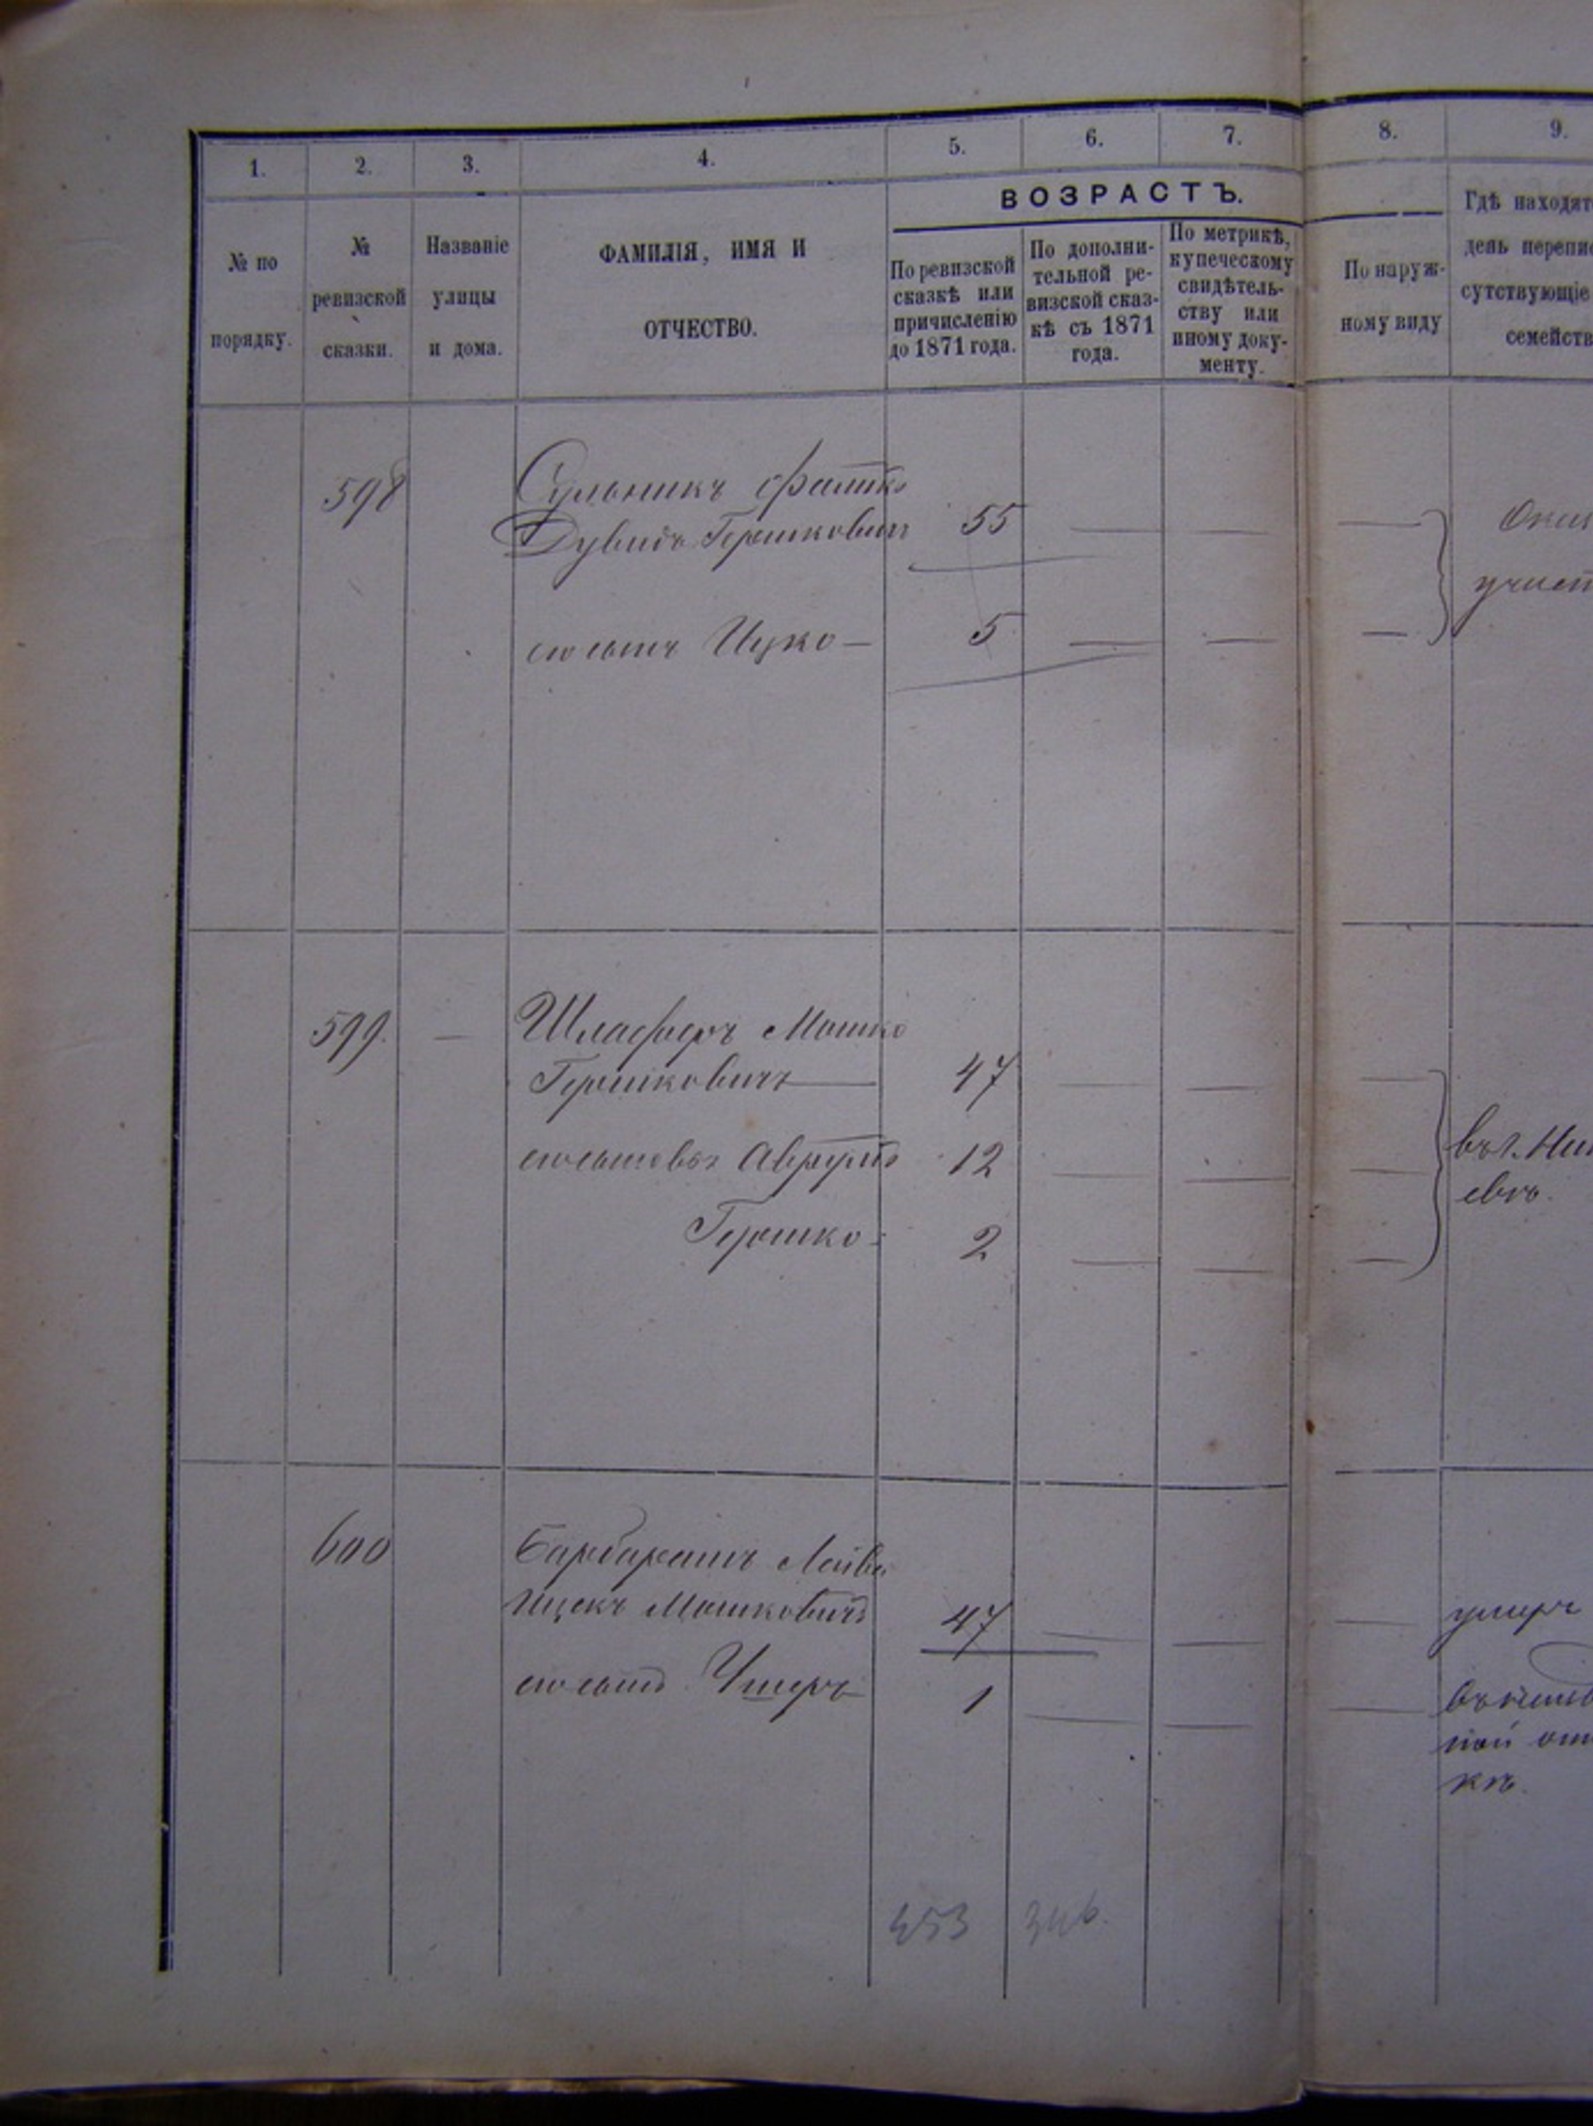 1. 2. 3. 4. 5. 6. 7. 8. 9.
ВОЗРАСТЪ.
№ по порядку.
№ ревизской сказки.
Названіе улицы и дома.
ФАМИЛІЯ, ИМЯ И
ОТЧЕСТВО.
По ревизской
сказкѣ или
причисленію
до 1871 года.
По дополни-
тельной ре-
визской сказ-
кѣ съ 1871
года.
По метрикѣ,
купеческому
свидѣтель-
ству или
иному доку-
менту.
По наруж-
ному виду
Гдѣ находят
день перепи
сутствующіе
семейств
598
Дувидъ Гершкович 55
его сынъ Ицко — 5
599. — Шлаферъ Мошко
Гершковичъ — 47
его сыновья Аврумъ 12
Гершко - 2
въ г. Ни
евѣ.
600 Лейба
Ицекъ Мошковичъ 47 умеръ
его сынъ Ушеръ 1
ной от
кѣ.
453 346.